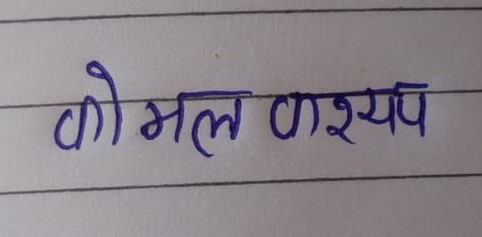 कोमल कश्यप